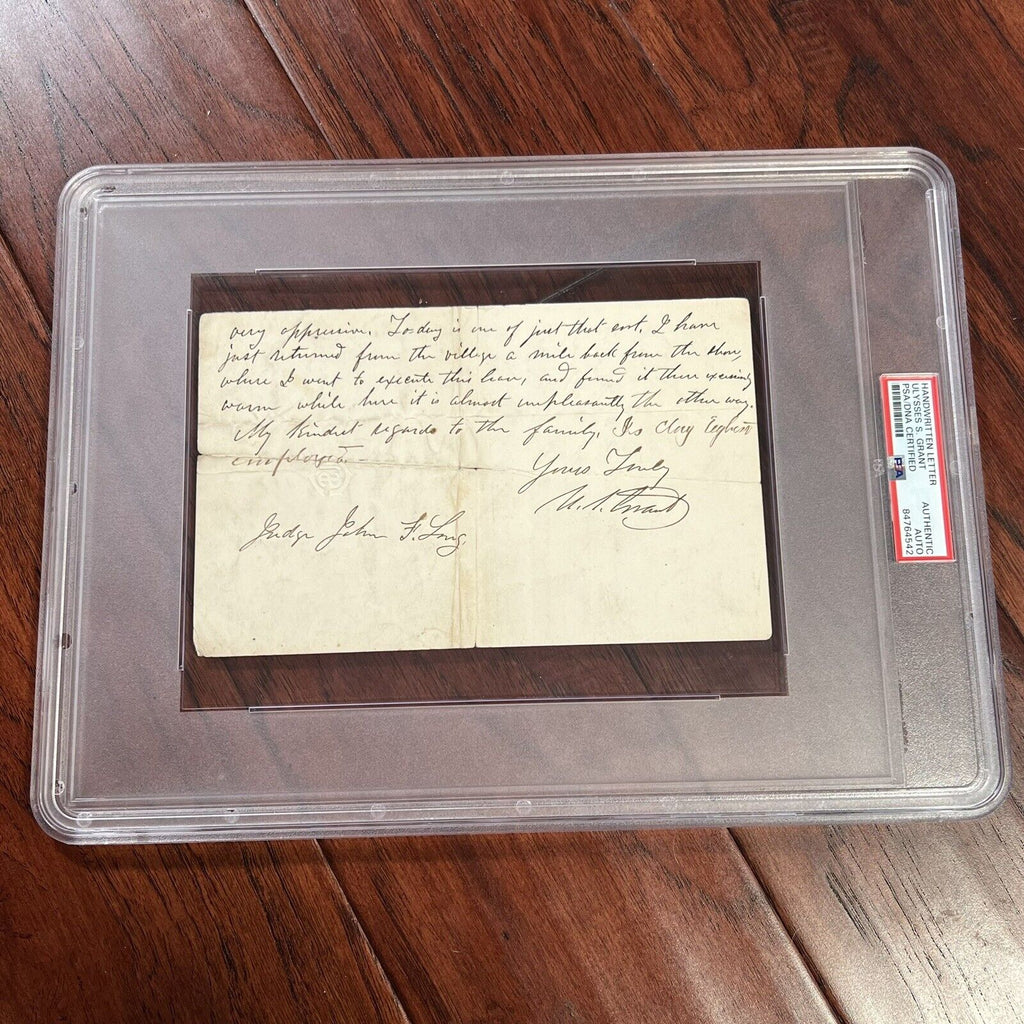 very oppressive. To-day is one of just that sort. I have
just returned from the village a mile back from the shore,
where I went to execute this lease, and found it there excessively
warm while here it is almost unpleasantly the other way.
My kindest regards to the family. Is Clay
employed.
Yours Truly
U. S. Grant
Judge John F. Long
HANDWRITTEN LETTER
ULYSSES S. GRANT
PSA/DNA CERTIFIED
PSA
AUTHENTIC
AUTO
84764542